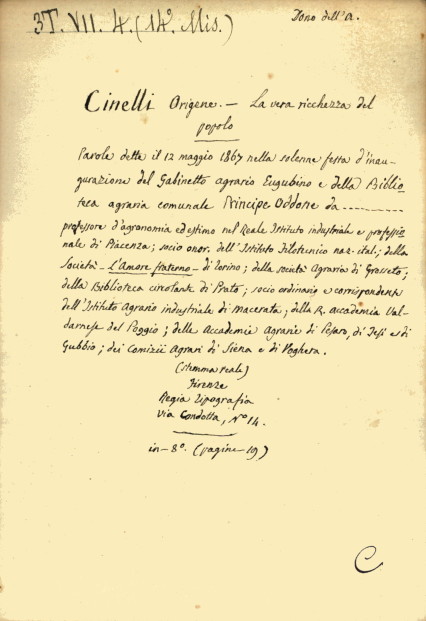 3T. VII. 4. (14º. Mis.)
Dono dell'a.
Cinelli Origene. — La vera ricchezza del
popolo
Parole dette il 12 maggio 1867 nella solenne festa d'inau-
gurazione del Gabinetto agrario Eugubino e della Biblio-
teca agraria comunale Principe Oddone da
professore d'agronomia ed estimo nel Reale Istituto industriale e professio-
nale di Piacenza; socio onor. dell'Istituto Filotecnico naz. ital.; della
Società - L'Amore fraterno - di Torino; della società Agraria di Grosseto;
della Biblioteca circolante di Prato; socio ordinario e corrispondente
dell'Istituto Agrario industriale di Macerata; della R. Accademia Val-
darnese del Poggio; delle Accademie Agrarie di Pesaro, di Jesi e di
Gubbio; dei Comizii Agrari di Siena e di Voghera.
(stemma reale)
Firenze
Regia Tipografia
Via Condotta, Nº 14.
in-8º. (pagine 19)
C